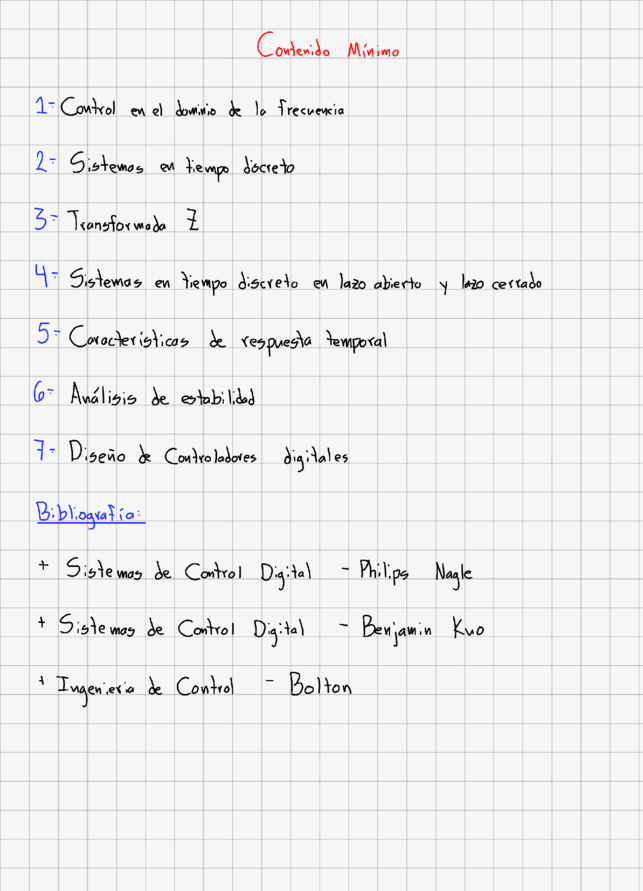 Contenido Mínimo
1- Control en el dominio de la frecuencia
2- Sistemas en tiempo discreto
3- Transformada Z
4- Sistemas en tiempo discreto en lazo abierto y lazo cerrado
5- Características de respuesta temporal
6- Análisis de estabilidad
7- Diseño de Controladores digitales
Bibliografía:
+ Sistemas de Control Digital - Philips Nagle
+ Sistemas de Control Digital - Benjamin Kuo
+ Ingenieria de Control - Bolton